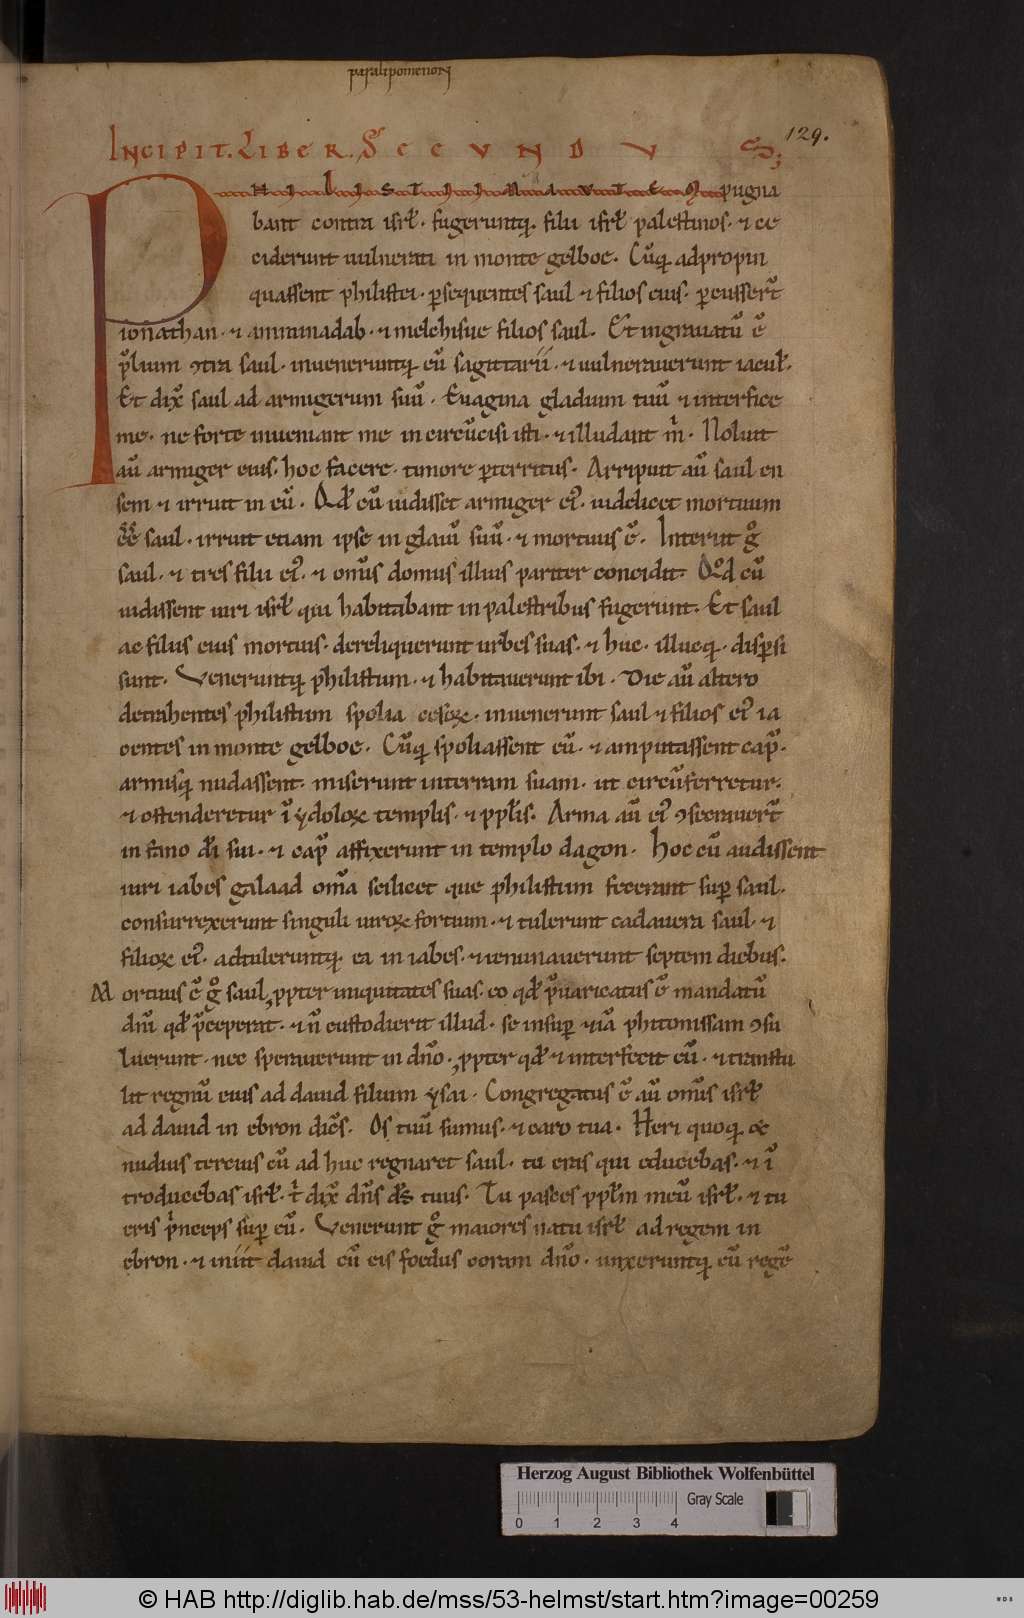 paralipomenon
129.
INCIPIT. LIBER. SECVNDVS;
PHILISTIIM AVTEM pugna
bant contra isrl̄. fugeruntq; filii isrl̄ palestinos. & ce
ciderunt uulnerati in monte gelboe. Cūq; adpropin
quassent philistei. ꝑsequentes saul & filios eius. ꝑcusserūt
ionathan. & aminadab. & melchisue filios saul. Et ingrauatū ē
p̄lium ꝯtra saul. inueneruntq; eū sagittarii. & uulnerauerunt iacul̄.
Et dix̄ saul ad armigerum suū. Euagina gladium tuū & interfice
me. ne forte ueniant me incircūcisi isti. & illudant m̄. Noluit
aū armiger eius. hoc facere. timore ꝑterritus. Arripuit aū saul en
sem & irruit in eū. Qd̄ cū uidisset armiger ei᷒. uidelicet mortuum
eē saul. irruit etiam ipse in glaiū suū. & mortuus ē. Interiit g̊
saul. & tres filii ei᷒. & om̄s domus illius pariter concidit. Qd̄ cū
uidissent uiri isrl̄ qui habitabant in palestribus fugerunt. Et saul
ac filiis eius mortuis. dereliquerunt urbes suas. & huc. illucq;. disꝑsi
sunt. Veneruntq; philistiim. & habitauerunt ibi. Die aū altero
detrahentes philistiim spolia cesoꝝ. inuenerunt saul & filios ei᷒ ia
centes in monte gelboe. Cūq; spoliassent eū. & amputassent cap̄.
armisq; nudassent. miserunt in terram suam. ut circūferretur.
& ostenderetur ī ydoloꝝ templis. & ppl̄is. Arma aū ei᷒ ꝯsecrauerūt
in fano d̄i sui. & cap̄ affixerunt in templo dagon. Hoc cū audissent
uiri iabes galaad om̄a scilicet que philistiim fecerant sup̄ saul.
consurrexerunt singuli uiroꝝ fortium. & tulerunt cadauera saul. &
filioꝝ ei᷒. adtuleruntq; ea in iabes. & ieiunauerunt septem diebus.
Mortuus ē g̊ saul, ꝓpter iniquitates suas. eo qd̄ p̄uaricatus ē mandatū
dn̄i qd̄ p̄ceperat. & n̄ custodierit illud. se insup̄ &iā phitonissam ꝯsu
luerunt. nec sperauerunt in dn̄o. ꝓpter qd̄ & interfecit eū. & transtu
lit regnū eius ad dauid filium ysai. Congregatus ē aū om̄s isrl̄
ad dauid in ebron dic̄s. Os tuū sumus. & caro tua. Heri quoq; &
nudius tercius cū adhuc regnaret saul. tu eras qui educebas. & ī
troducebas isrl̄. t̄ dix̄ dn̄s d̄s tuus. Tu pasces ppl̄m meū isrl̄. & tu
eris p̄nceps sup̄ eū. Venerunt g̊ maiores natu isrl̄ ad regem in
ebron. & iniit dauid cū eis foedus coram dn̄o. unxeruntq; eū regē
Herzog August Bibliothek Wolfenbüttel
Gray Scale
0 1 2 3 4
© HAB http://diglib.hab.de/mss/53-helmst/start.htm?image=00259